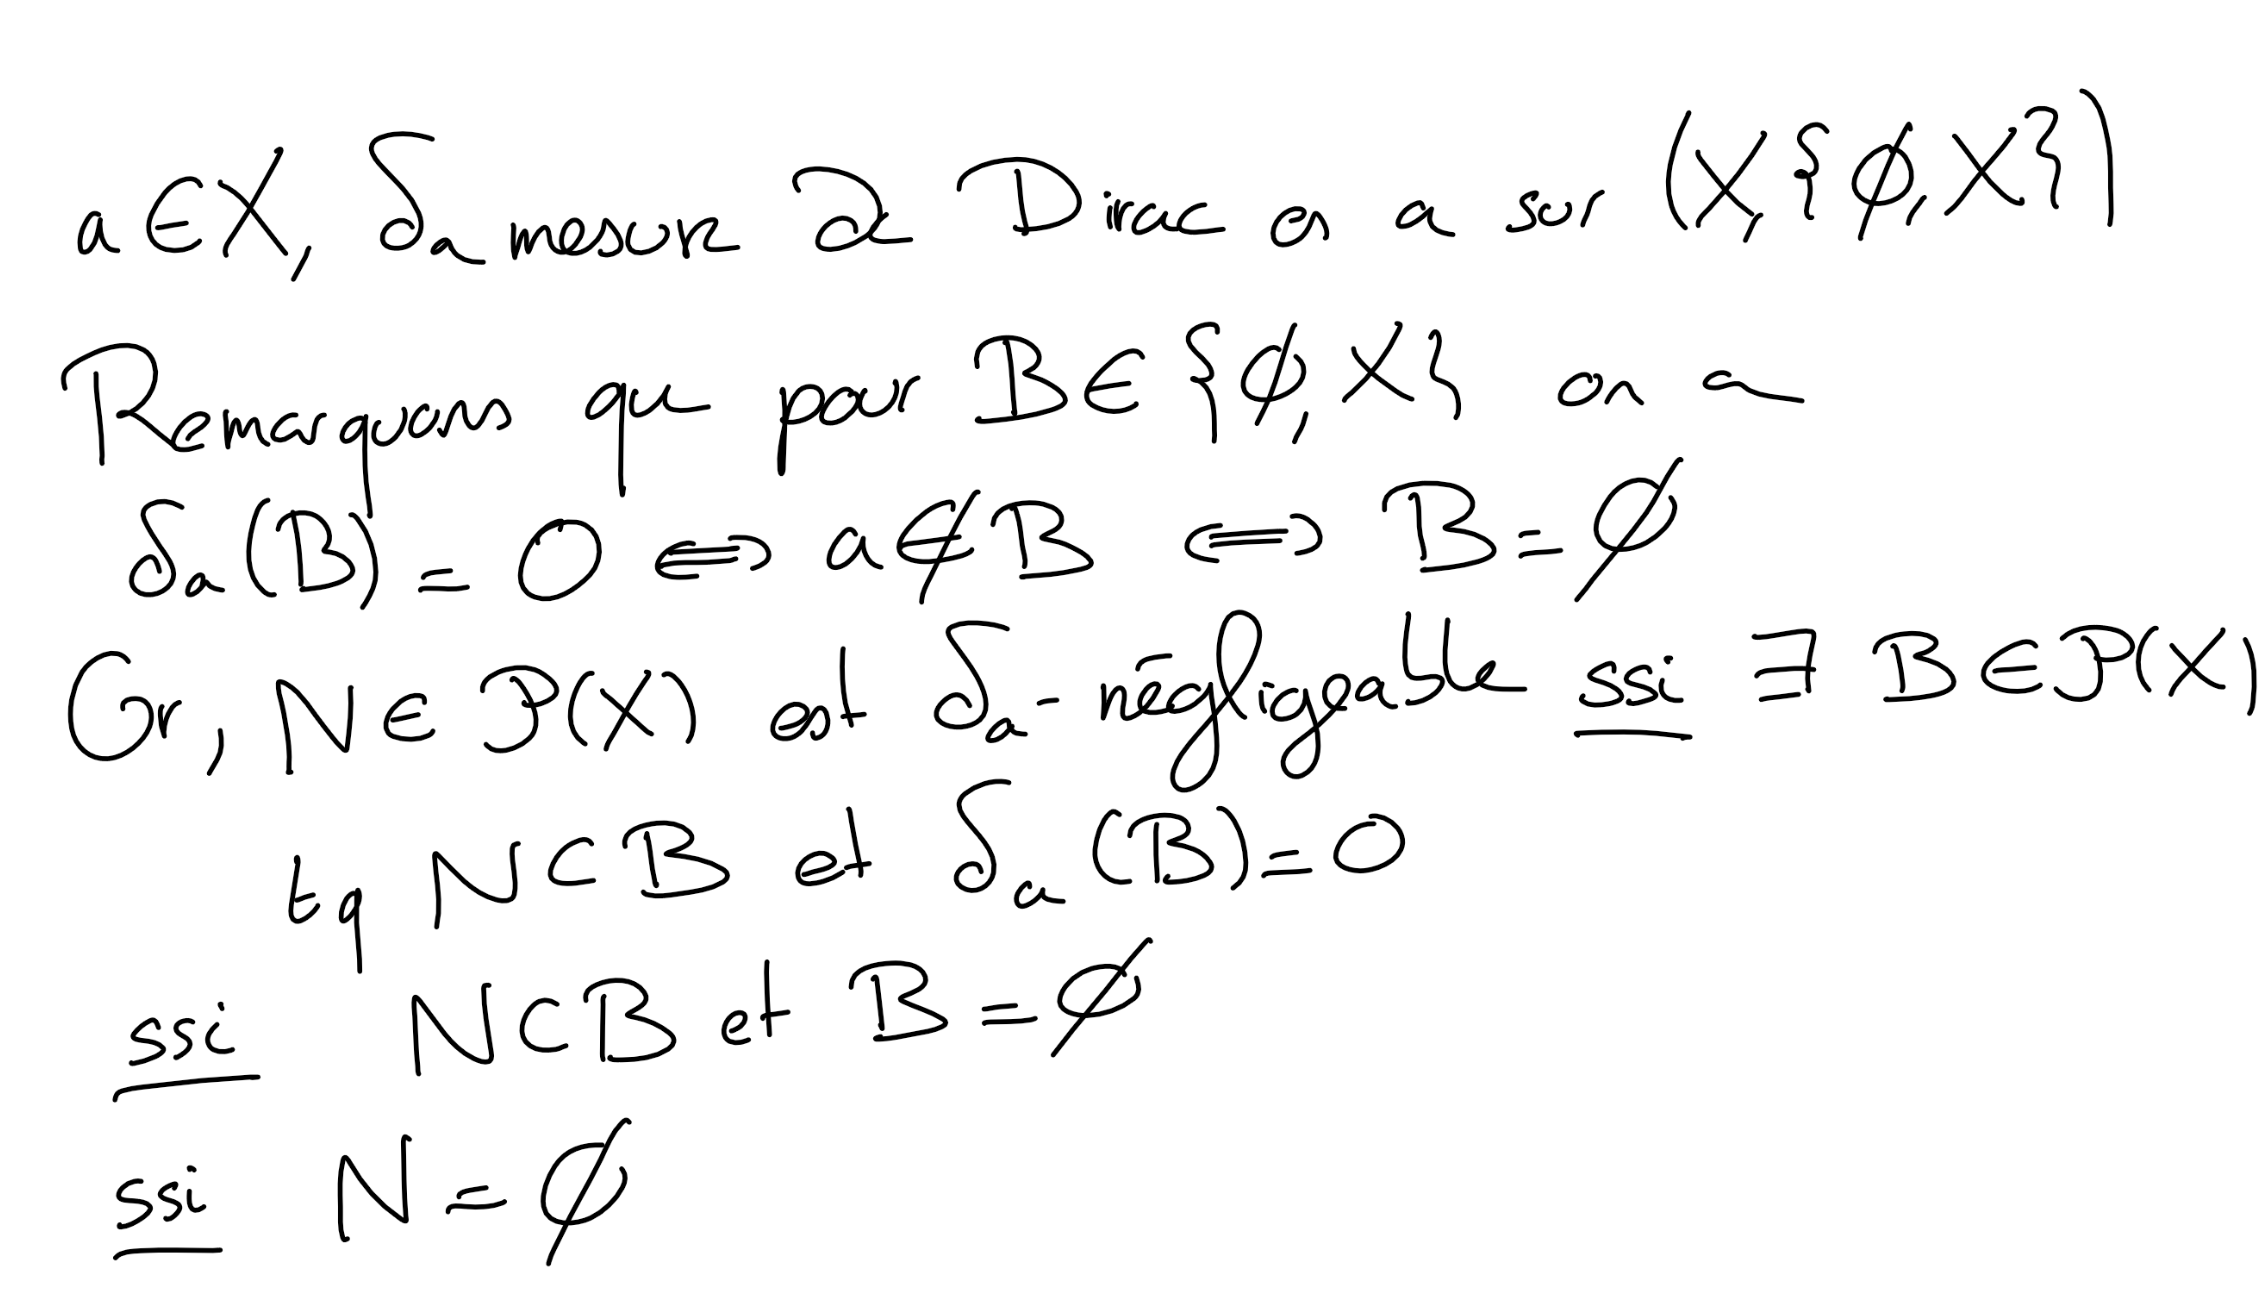 a ∈ X, δₐ mesure de Dirac en a sur (X, {∅, X})
Remarquons que pour B ∈ {∅, X} on a
δₐ(B) = 0 ⟺ a ∉ B ⟺ B = ∅
Or, N ∈ P(X) est δₐ-négligeable ssi ∃ B ∈ P(X)
tq N ⊂ B et δₐ(B) = 0
ssi N ⊂ B et B = ∅
ssi N = ∅